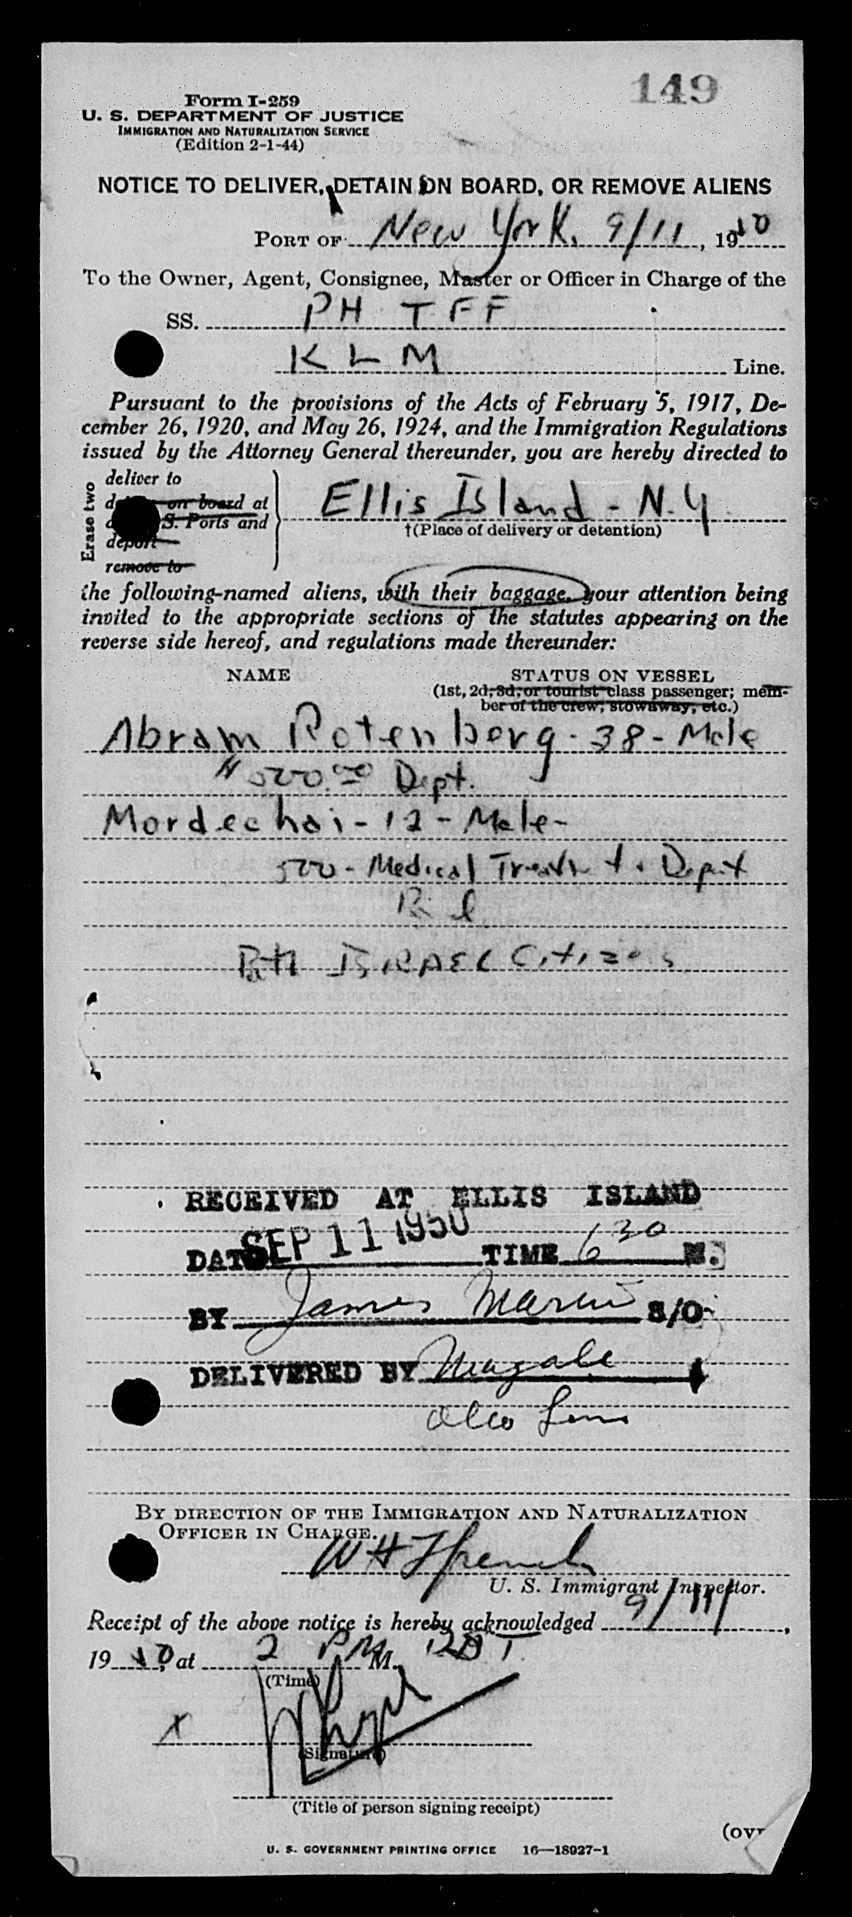 149
Form I-259
U. S. DEPARTMENT OF JUSTICE
IMMIGRATION AND NATURALIZATION SERVICE
(Edition 2-1-44)
NOTICE TO DELIVER, DETAIN ON BOARD, OR REMOVE ALIENS
PORT OF New York, 9/11, 1950
To the Owner, Agent, Consignee, Master or Officer in Charge of the
SS. PH TFF
KLM Line.
Pursuant to the provisions of the Acts of February 5, 1917, De-
cember 26, 1920, and May 26, 1924, and the Immigration Regulations
issued by the Attorney General thereunder, you are hereby directed to
Erase two
deliver to
on board at
S. Ports and
deport
remove to
Ellis Island - N.Y.
†(Place of delivery or detention)
the following-named aliens, with their baggage, your attention being
invited to the appropriate sections of the statutes appearing on the
reverse side hereof, and regulations made thereunder:
NAME STATUS ON VESSEL
(1st, 2d, 3d, or tourist class passenger; mem-
ber of the crew, stowaway, etc.)
Abram Rotenberg - 38 - Male
500.00 Dept.
Mordechai - 12 - Male -
500 - Medical Treatm't & Dept
Both ISRAEL Citizens
RECEIVED AT ELLIS ISLAND
DATE SEP 11 1950 TIME 630 M.
BY James S/O
DELIVERED BY
BY DIRECTION OF THE IMMIGRATION AND NATURALIZATION
OFFICER IN CHARGE.
U. S. Immigrant Inspector.
Receipt of the above notice is hereby acknowledged 9/11,
1950, at 2 PM M. DST.
(Time)
X
(Signature)
(Title of person signing receipt)
U. S. GOVERNMENT PRINTING OFFICE 16—18927-1